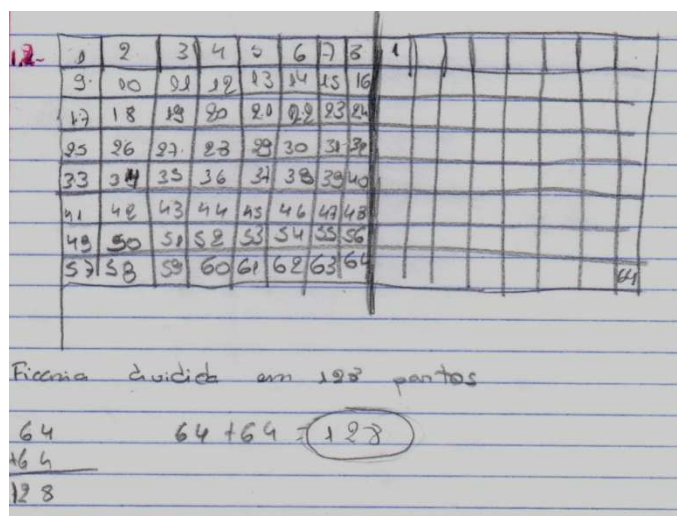 1.2- 1 2 3 4 5 6 7 8 1
9. 10 11 12 13 14 15 16
17 18 19 20 21 22 23 24
25 26 27. 28 29 30 31 32
33 34 35 36 37 38 39 40
41 42 43 44 45 46 47 48
49 50 51 52 53 54 55 56
57 58 59 60 61 62 63 64 64
Ficaria dividida em 128 partes
64 64 + 64 = 128
+64
128